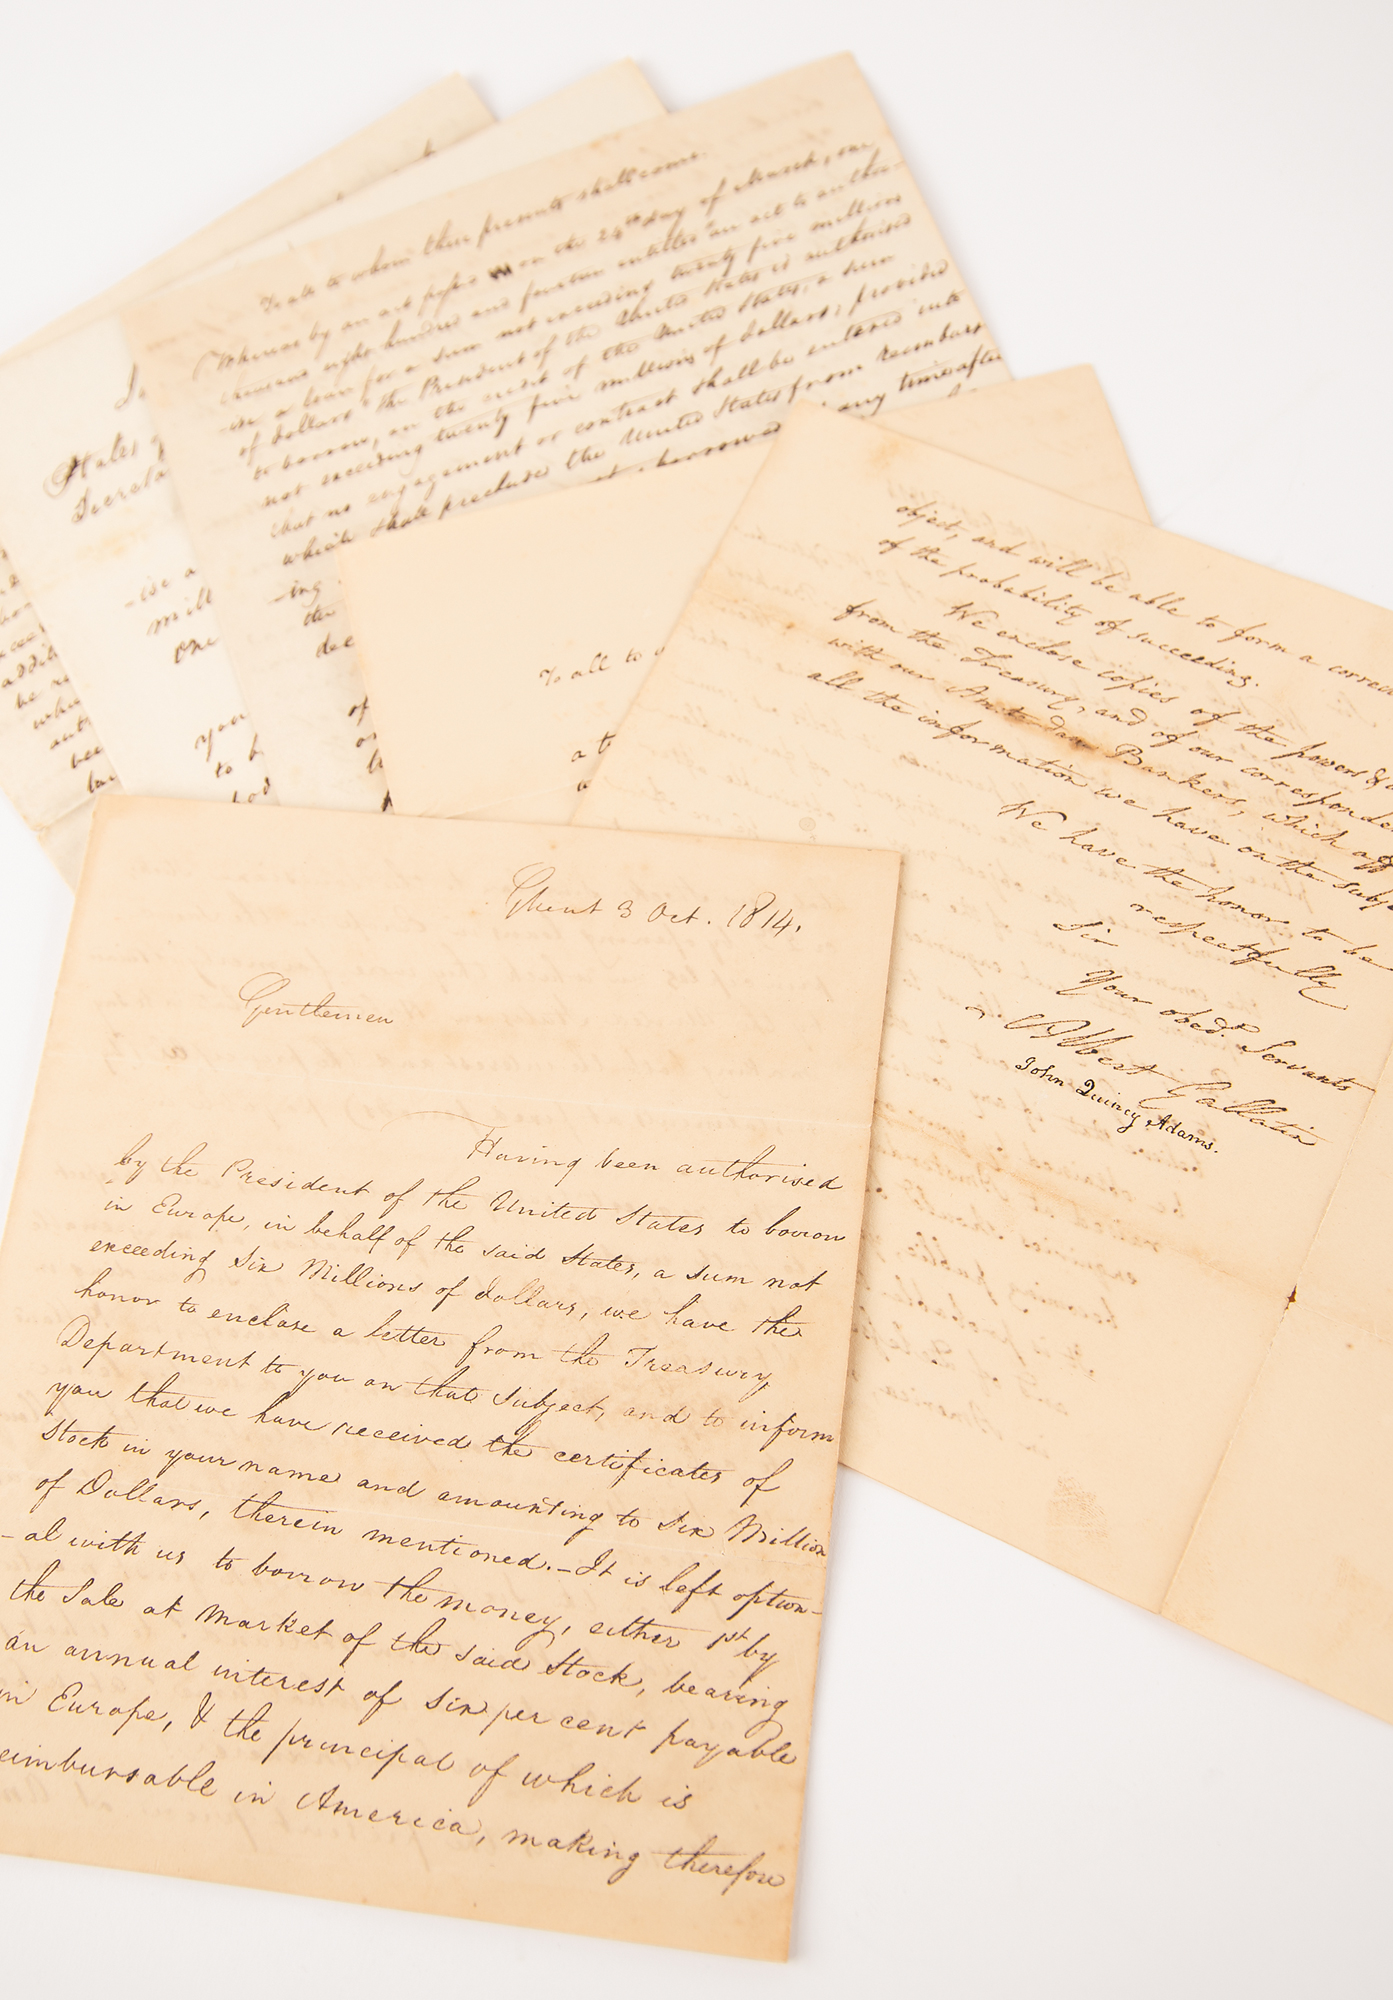 To all to whom these presents shall come.
Whereas by an act passed on the 24th day of March, one
thousand eight hundred and fourteen entitled "an act to autho-
-ise a loan for a sum not exceeding twenty five millions
of dollars" the President of the United States is authorised
to borrow, on the credit of the United States, a sum
not exceeding twenty five millions of dollars; provided
that no engagement or contract shall be entered into
which shall preclude the United States from reimburs
-ing any time after
the
States
Secreta
-ise a
mill
one
you
to b
addit
be
To all to
a
object, and will be able to form a correc
of the probability of succeeding.
We enclose copies of the powers &
from the Treasury, and of our corresponde
with our Amsterdam Bankers, which aff
all the information we have on the subje
We have the honor to be
respectfully
Sir
Your obedt. Servants
Albert Gallatin
John Quincy Adams.
Ghent 3 Oct. 1814.
Gentlemen
Having been authorised
by the President of the United States to borrow
in Europe, in behalf of the said States, a sum not
exceeding Six Millions of dollars, we have the
honor to enclose a letter from the Treasury
Department to you on that subject, and to inform
you that we have received the certificates of
Stock in your name and amounting to Six Million
of Dollars, therein mentioned.–It is left option-
-al with us to borrow the money, either 1st by
the Sale at market of the said Stock, bearing
an annual interest of six per cent payable
in Europe, & the principal of which is
eimbursable in America, making therefore